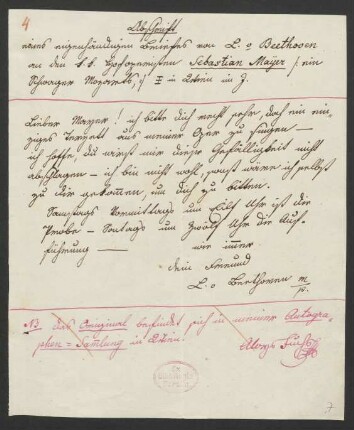 4
Abschrift
eines eigenhändigen Briefes von L. v Beethoven
an den k.k. Hofopernisten Sebastian Mayer /: ein
Schwager Mozarts, :/ in Wien in
Lieber Mayer! ich bitte dich recht sehr, doch ein ein-
ziges Terzett aus meiner Oper zu singen —
ich hoffe, du wirst mir diese Gefälligkeit nicht
abschlagen — ich bin nicht wohl, sonst wäre ich selbst
zu dir gekommen, um dich zu bitten.
Samstags Vormittags um Eilf Uhr ist die
Probe — Sontags um Zwölf Uhr die Auf-
führung —
wie immer
dein Freund
L. v. Beethoven m/p.
NB das Original befindet sich in meiner Autogra-
phen = Samlung in Wien.
Aloys Fuchs
7